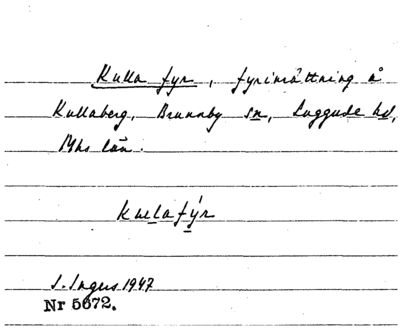 Kulla fyr, fyrinrättning å
Kullaberg, Brunnby sn, Luggude hd,
Mhs län.
Kullafýr
S. Ingers 1947
Nr 5672.